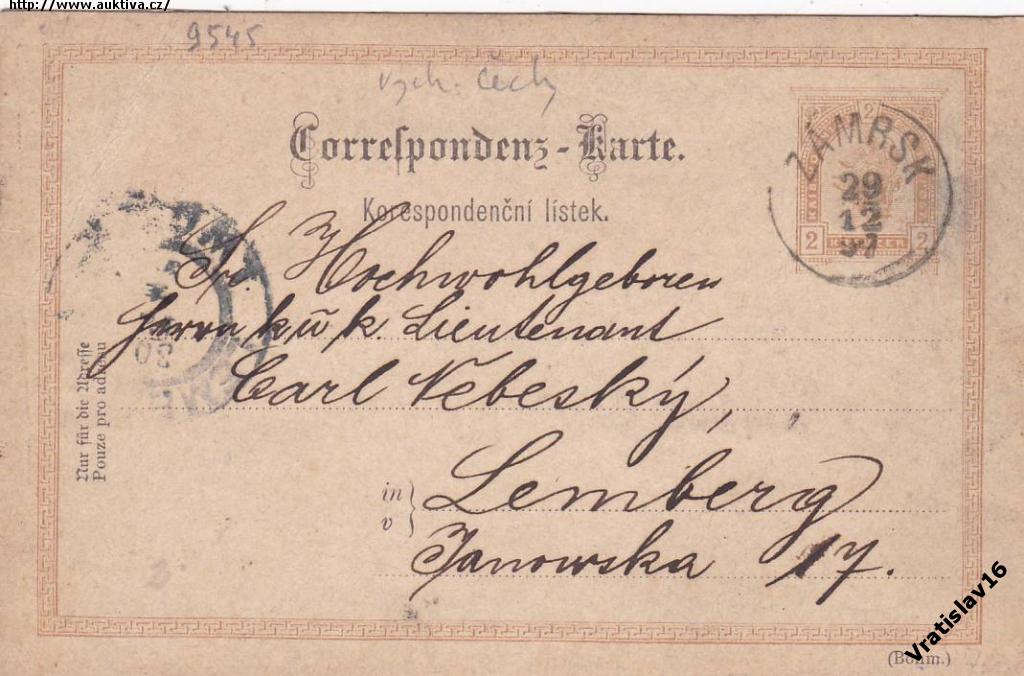 http://www.auktiva.cz/
9545
Vých. Čechy
Correspondenz-Karte.
Korespondenční lístek.
ZÁMRSK
29
12
97
2
2 2
Sr. Hochwohlgeboren
Herrn k u k. Lieutenant
Carl Nebeský,
in
v
Lemberg
Janowska 17.
Nur für die Adresse
Pouze pro adresu
(Böhm.)
Vratislav16